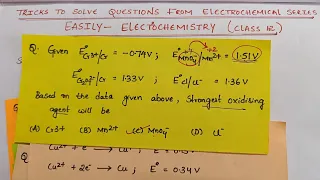 TRICKS TO SOLVE QUESTIONS FROM ELECTROCHEMICAL SERIES
EASILY - ELECTOCHEMISTRY (CLASS 12)
Q. Given E°Cr3+/Cr = -0.74V ; E°MnO4-/Mn2+ = 1.51V
+2
E°Cr2O7 2-/Cr3+ = 1.33V ; E°Cl/Cl- = 1.36V
Based on the data given above, strongest oxidizing
agent will be
(A) Cr3+ (B) Mn2+ (C) MnO4- (D) Cl-
Q.
Cu2+ + e- → Cu+ ; E° = 0.15V
Cu2+ + 2e- → Cu ; E° = 0.34V